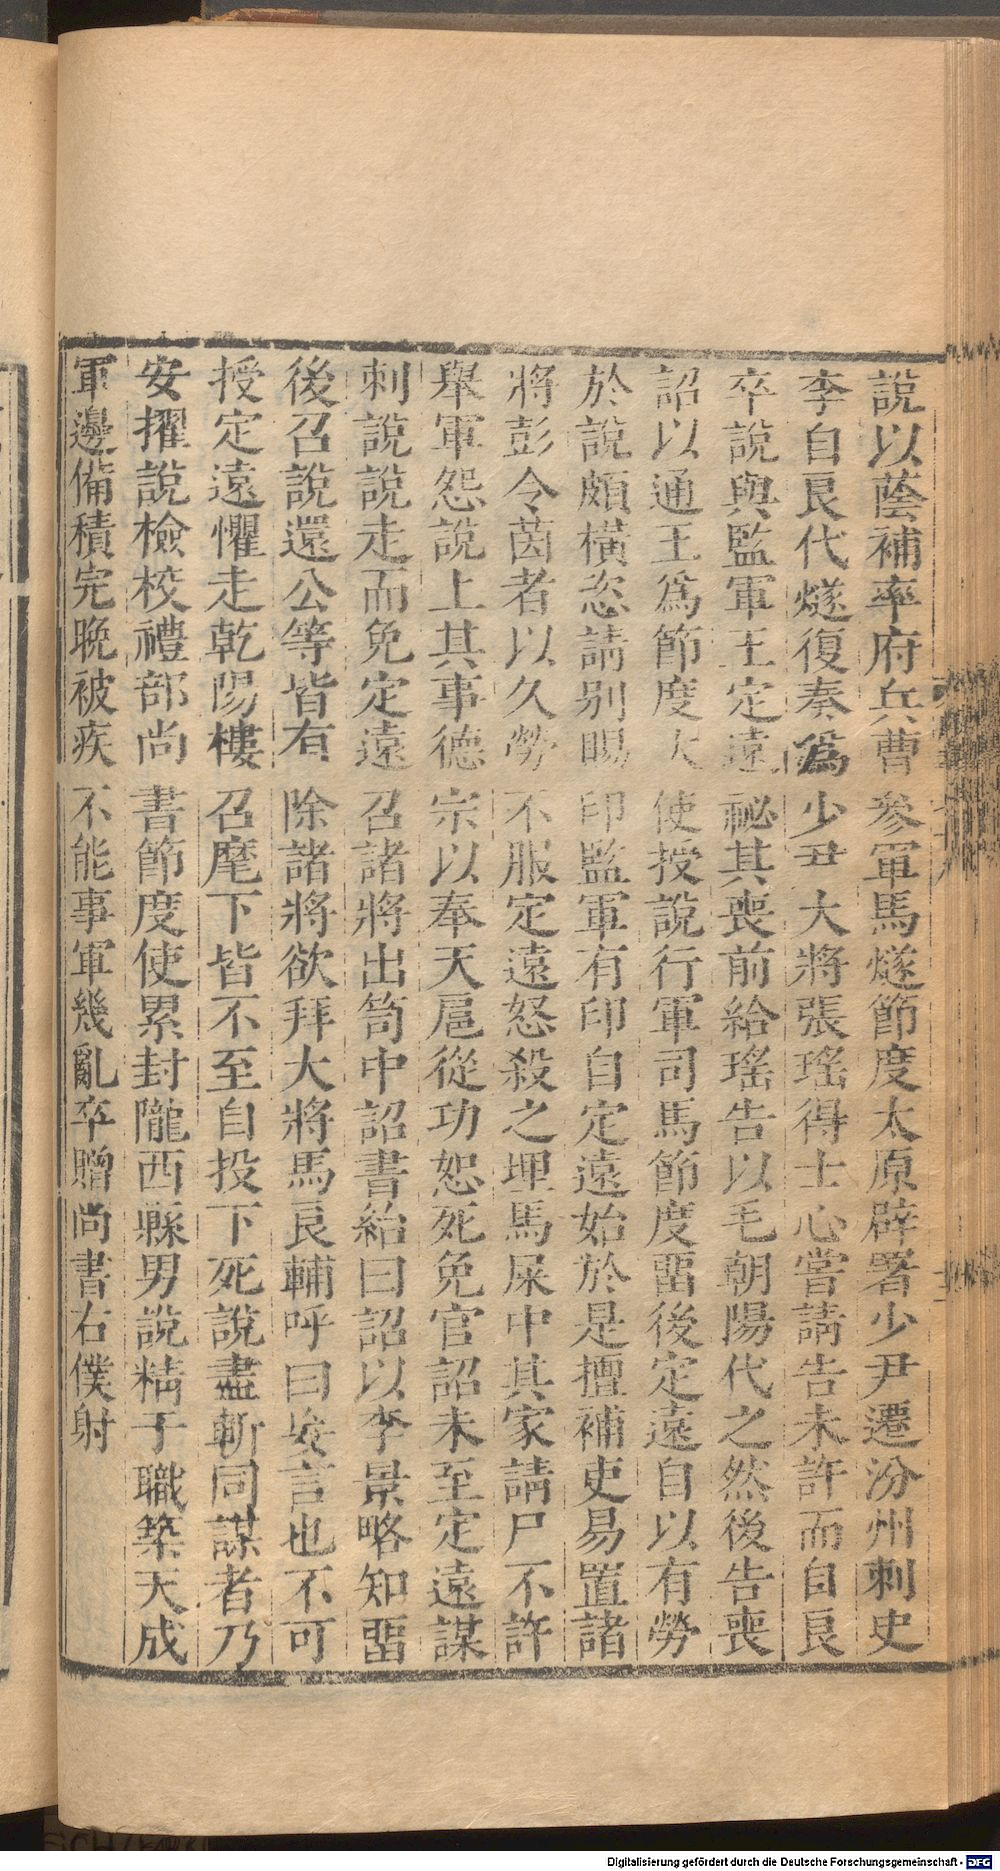 說以蔭補率府兵曹參軍馬燧節度太原辟署少尹遷汾州刺史
李自良代燧復奏爲少尹大將張瑤得士心嘗請告未許而自良
卒說與監軍王定遠祕其喪前給瑤告以毛朝陽代之然後告喪
詔以通王爲節度大使授說行軍司馬節度畱後定遠自以有勞
於說頗橫恣請別賜印監軍有印自定遠始於是擅補吏易置諸
將彭令茵者以久勞不服定遠怒殺之埋馬屎中其家請尸不許
舉軍怨說上其事德宗以奉天扈從功恕死免官詔未至定遠謀
刺說說走而免定遠召諸將出笥中詔書紿曰詔以李景略知畱
後召說還公等皆有除諸將欲拜大將馬良輔呼曰妄言也不可
授定遠懼走乾陽樓召麾下皆不至自投下死說盡斬同謀者乃
安擢說檢校禮部尚書節度使累封隴西縣男說精于職築天成
軍邊備積完晚被疾不能事軍幾亂卒贈尚書右僕射
Digitalisierung gefördert durch die Deutsche Forschungsgemeinschaft - DFG